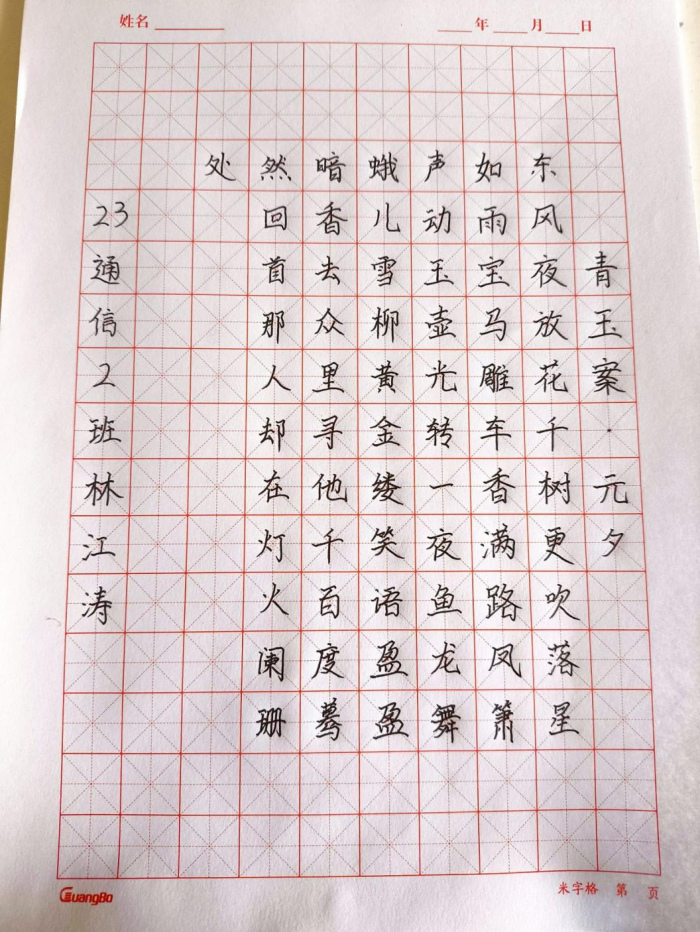 姓名 年 月 日
青玉案·元夕
东风夜放花千树更吹落星
如雨宝马雕车香满路凤箫
声动玉壶光转一夜鱼龙舞
蛾儿雪柳黄金缕笑语盈盈
暗香去众里寻他千百度蓦
然回首那人却在灯火阑珊
处
23通信2班林江涛
GuangBo
米字格 第 页